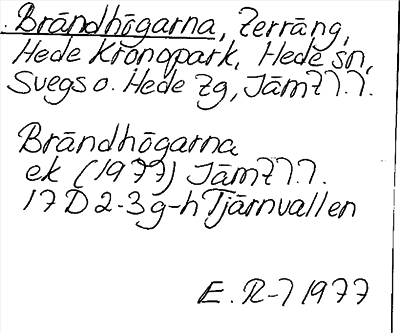 Brändhögarna, Terräng,
Hede Kronopark, Hede sn,
Svegs o. Hede tg, Jämtl.
Brändhögarna
ek (1977) Jämtl.
17 D 2-3 g-h Tjärnvallen
E. R-7 1977